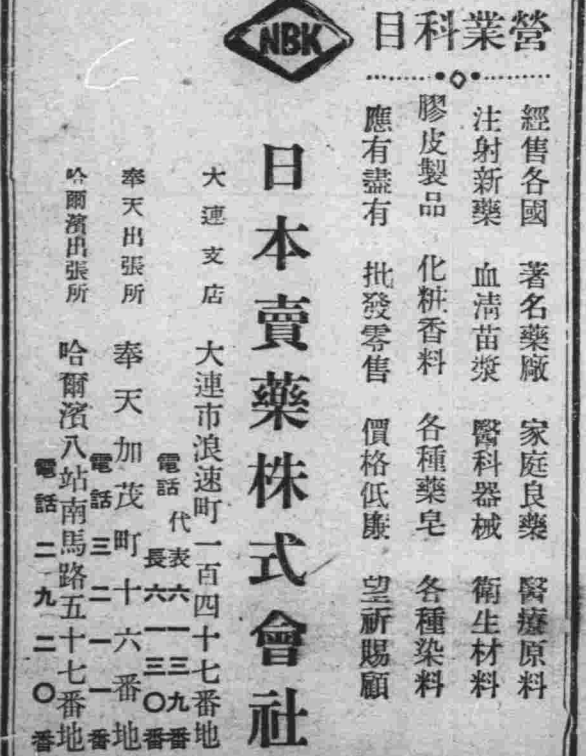 NBK
營業科目
經售各國 著名藥廠 家庭良藥 醫療原料
注射新藥 血清苗漿 醫科器械 衛生材料
膠皮製品 化粧香料 各種藥皂 各種染料
應有盡有 批發零售 價格低廉 望祈賜顧
日本賣藥株式會社
大連支店 大連市浪速町一百四十七番地
電話 代表六一三九番
長六一三〇番
奉天出張所 奉天加茂町十六番地
電話三二一一番
哈爾濱出張所 哈爾濱八站南馬路五十七番地
電話二九二〇番